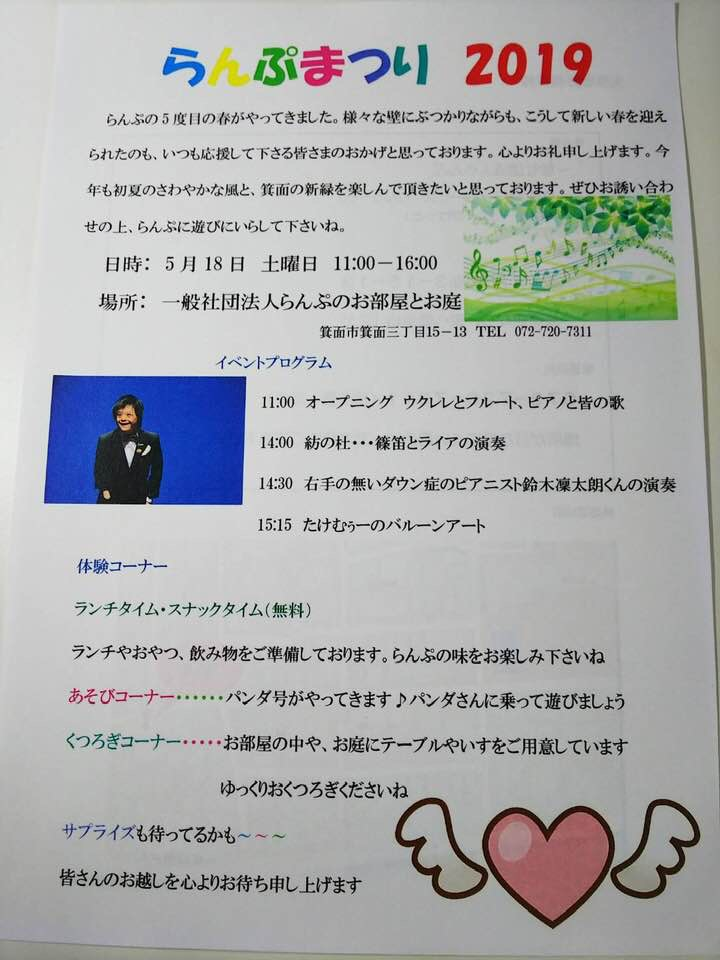 らんぷまつり 2019
らんぷの5度目の春がやってきました。様々な壁にぶつかりながらも、こうして新しい春を迎え
られたのも、いつも応援して下さる皆さまのおかげと思っております。心よりお礼申し上げます。今
年も初夏のさわやかな風と、箕面の新緑を楽しんで頂きたいと思っております。ぜひお誘い合わ
せの上、らんぷに遊びにいらして下さいね。
日時: 5月18日 土曜日 11:00-16:00
場所: 一般社団法人らんぷのお部屋とお庭
箕面市箕面三丁目15-13 TEL 072-720-7311
イベントプログラム
11:00 オープニング ウクレレとフルート、ピアノと皆の歌
14:00 紡の杜・・・篠笛とライアの演奏
14:30 右手の無いダウン症のピアニスト鈴木凜太朗くんの演奏
15:15 たけむぅーのバルーンアート
体験コーナー
ランチタイム・スナックタイム(無料)
ランチやおやつ、飲み物をご準備しております。らんぷの味をお楽しみ下さいね
あそびコーナー・・・・・・パンダ号がやってきます♪パンダさんに乗って遊びましょう
くつろぎコーナー・・・・・お部屋の中や、お庭にテーブルやいすをご用意しています
ゆっくりおくつろぎくださいね
サプライズも待ってるかも~~~
皆さんのお越しを心よりお待ち申し上げます